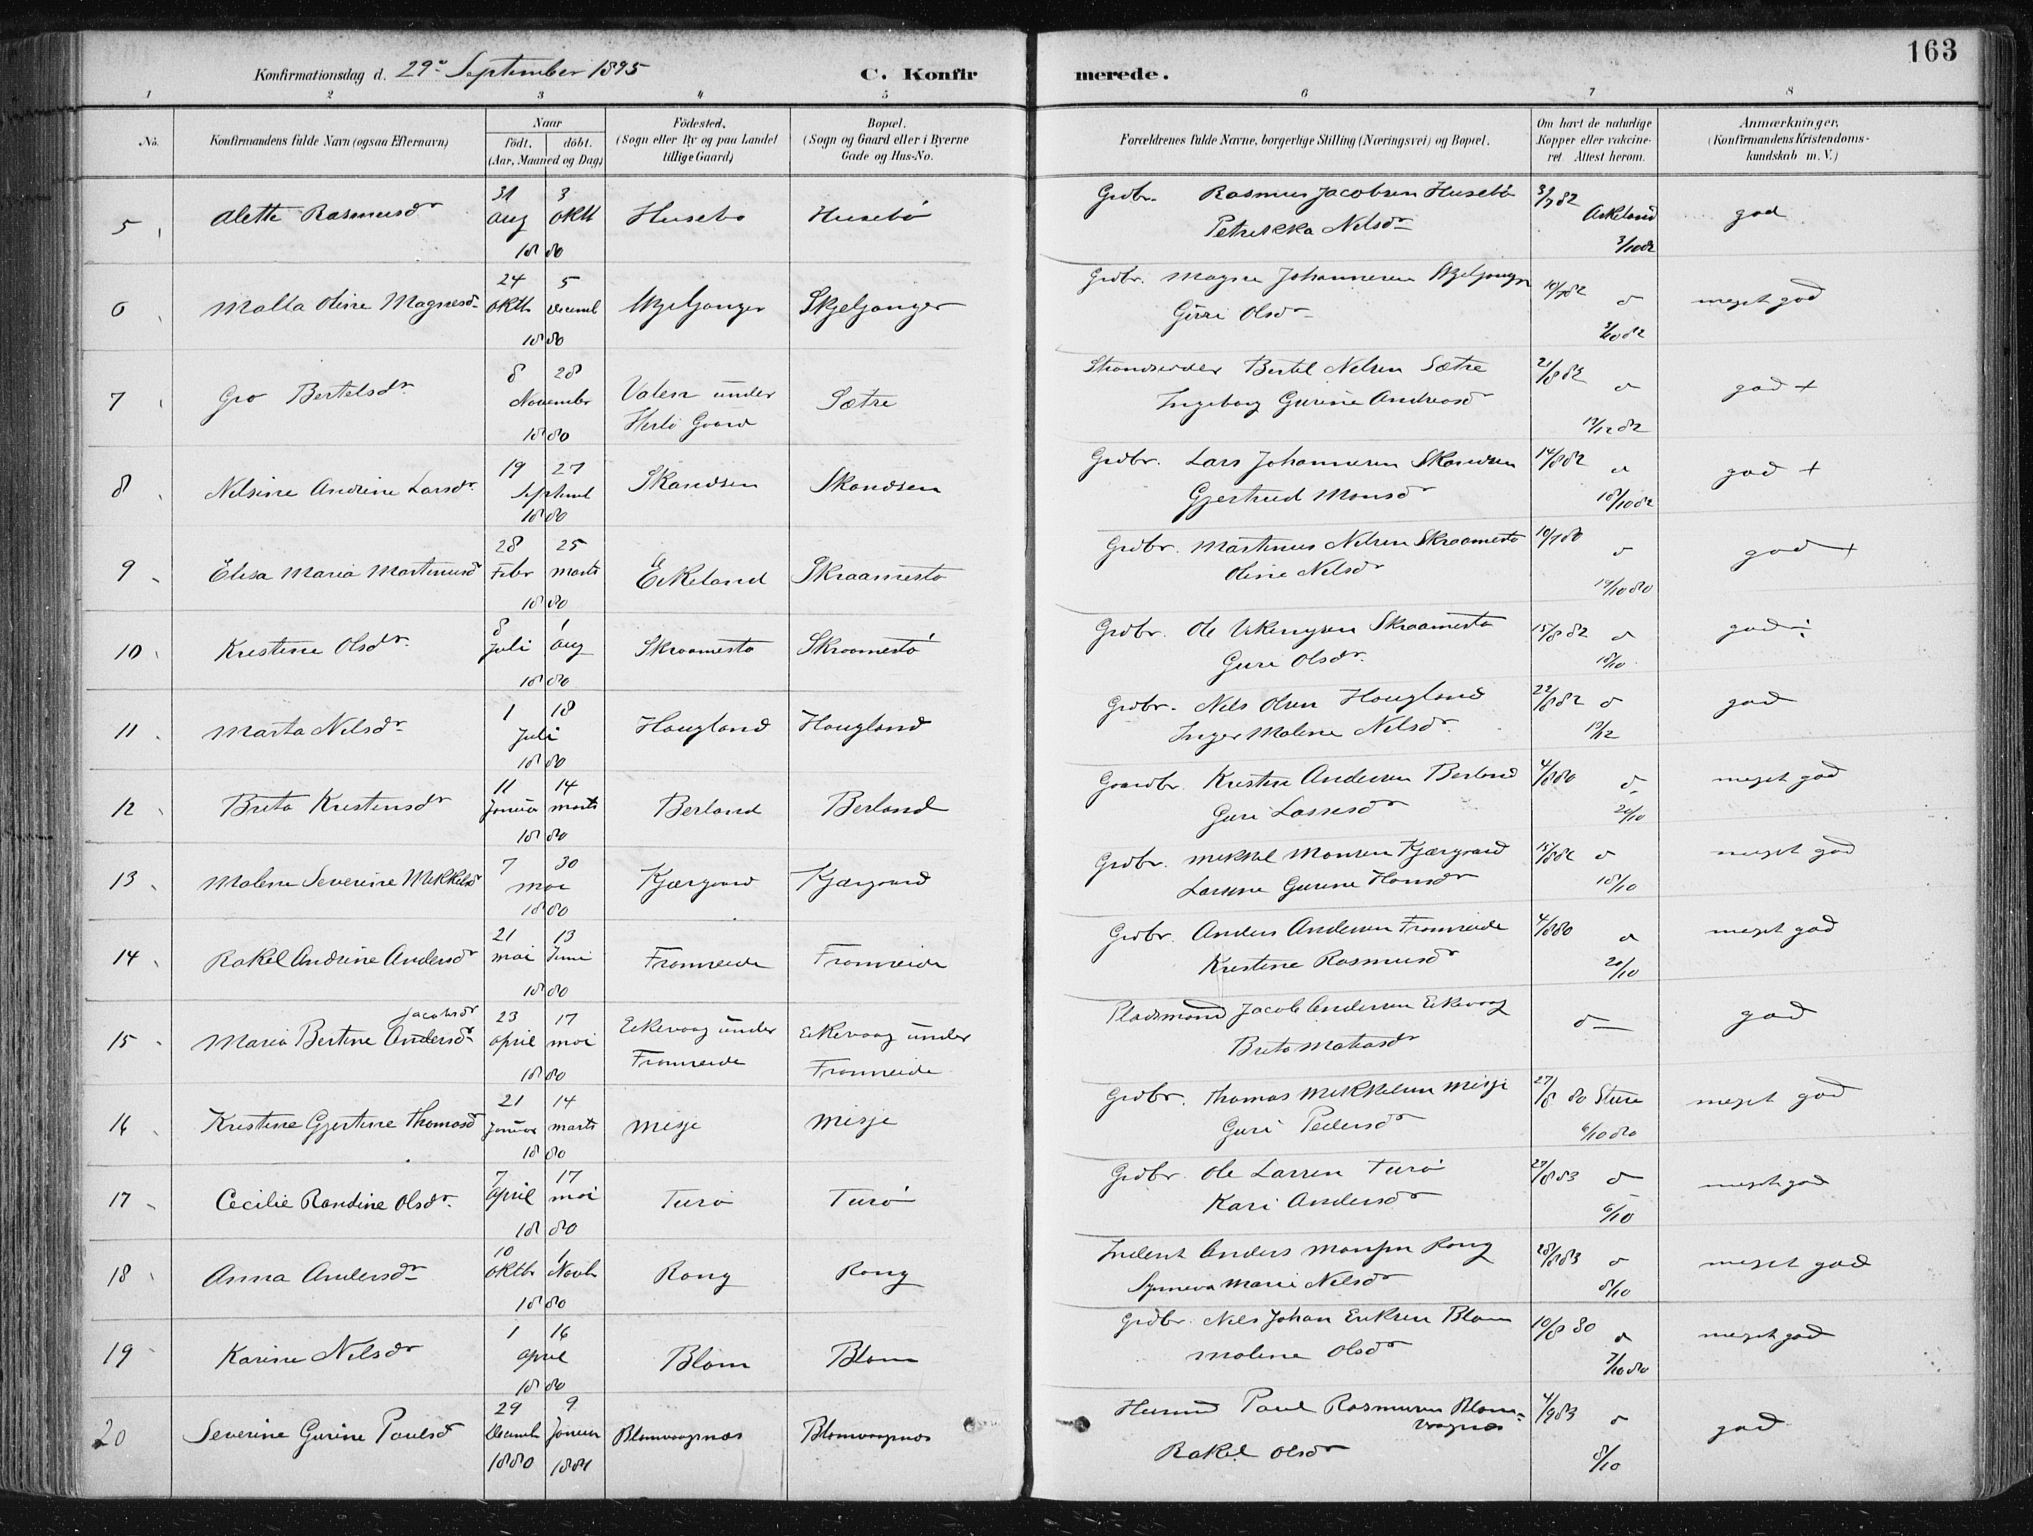 163
Konfirmationsdag d. 29de September 1895 C. Konfirmerede.
1 2 3 4 5 6 7 8
No. Konfirmandens fulde Navn (ogsaa Efternavn) Naar født. døbt. (Aar, Maaned og Dag) Fødested. (Sogn eller By og paa Landet tillige Gaard) Bopæl. (Sogn og Gaard eller i Byerne Gade og Hus-No. Forældrenes fulde Navne, borgerlige Stilling (Næringsvei) og Bopæl. Om havt de naturlige Kopper eller vakcineret. Attest herom. Anmærkninger. (Konfirmandens Kristendomskundskab m. V.)
5 Alette Rasmusdr 31 Aug 3 Oktb 1880 Husebø Husebø Grdbr. Rasmus Jacobsen Husebø Petrikka Nilsdr 3/7 82 Askeland 3/10 82 god
6 Malla Oline Magnesdr 24 Oktb 5 Decemb 1880 Skjeljanger Skjeljanger Grdbr. Magne Johannesen Skjeljanger Guri Olsdr 10/7 82 d 3/10 82 meget god
7 Gro Bertelsdr. 8 28 November 1880 Valen under Herlö Gaard Sætre Strandsidder Bertel Nilsen Sætre Ingeborg Gurine Andreasdr 21/8 83 d 12/12 82 god +
8 Nilsine Andrine Larsdr. 19 27 Septemb 1880 Skandsen Skandsen Grdbr. Lars Johannesen Skandsen Gjertrud Monsdr 14/8 82 d 18/10 82 god +
9 Elisa Maria Martinusdr 28 Febr 25 Marts 1880 Eikeland Skraamestø Grdbr. Martinus Nilsen Skraamestø Oline Nilsdr 10/9 80 d 19/10 80 god +
10 Kristine Olsdr. 8 Juli 1 Aug 1880 Skraamestø Skraamestø Grdbr. Ole Skraamestø Guri Olsdr. 15/8 82 d 18/10 god
11 Marta Nilsdr 1 18 Juli 1880 Haugland Haugland Grdbr. Nils Olsen Haugland Inger Malene Nilsdr. 22/8 82 d 12/12 god
12 Brita Kristensdr 11 Januar 14 Marts 1880 Berland Berland Gaardbr. Kristen Andersen Berland Guri Lassesdr 4/8 80 d 20/10 meget god
13 Malene Severine Mikkelsdr 7 30 Mai 1880 Kjærgaard Kjærgaard Grdbr. Mikkel Monsen Kjærgaard Larsine Gurine Hansdr 15/8 82 d 18/10 meget god
14 Rakel Andrine Andersdr 21 Mai 13 Juni 1880 Fromreide Fromreide Grdbr. Anders Andersen Fromreide Kristine Rasmusdr 4/8 80 d 20/10 meget god
15 Maria Bertine Andersdr Jacobsdr 23 April 17 Mai 1880 Eikevaag under Fromreide Eikevaag under Fromreide Pladsmand Jacob Andersen Eikevaag Brita Matiasdr d god
16 Kristine Gjertine Thomasdr 21 Januar 14 Marts 1880 Misje Misje Grdbr. Thomas Mikkelsen Misje Guri Pedersdr 27/8 80 Sture 6/10 80 meget god
17 Cecilie Randine Olsdr. 7 April 17 Mai 1880 Turø Turø Grdbr. Ole Larsen Turø Kari Andersdr 29/8 83 d 6/10 meget god
18 Anna Andersdr 10 Oktbr 1 Novb 1880 Rong Rong Inderst Anders Monsen Rong Synneva Marie Nilsdr 28/8 83 d 8/10 meget god
19 Karine Nilsdr 1 16 April 1880 Blom Blom Grdbr. Nils Johan Eriksen Blom Malene Olsdr 10/8 80 d 7/10 80 meget god
20 Severine Gurine Paulsdr 29 Decemb 1880 9 Januar 1881 Blomvaagnæs Blomvaagnæs Husmd Paul Rasmussen Blomvaagnæs Rakel Olsdr 4/9 83 d 8/10 god